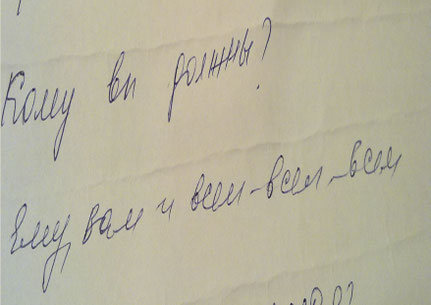 Кому вы должны?
Ему, вам и всем-всем-всем